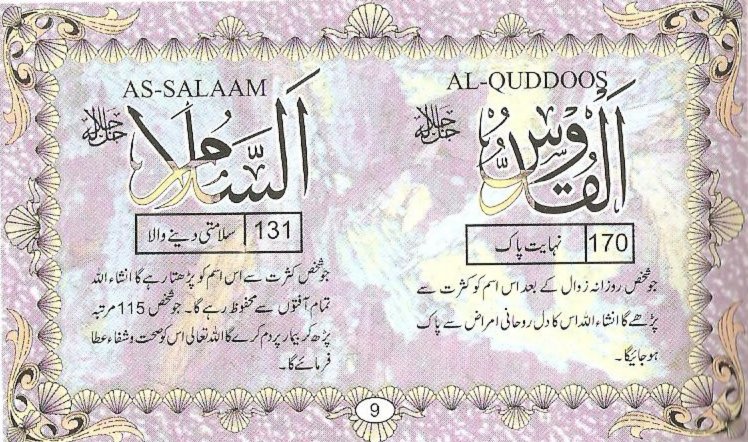 AL-QUDDOOS
جل جلالہ
اَلْقُدُّوْسُ
170 نہایت پاک
جو شخص روزانہ زوال کے بعد اس اسم کو کثرت سے
پڑھے گا انشاء اللہ اس کا دل روحانی امراض سے پاک
ہوجائیگا۔
AS-SALAAM
جل جلالہ
اَلسَّلَامُ
131 سلامتی دینے والا
جو شخص کثرت سے اس اسم کو پڑھتا رہے گا انشاء اللہ
تمام آفتوں سے محفوظ رہے گا۔ جو شخص 115 مرتبہ
پڑھ کر بیمار پر دم کرے گا اللہ تعالی اس کو صحت و شفاء عطا
فرمائے گا۔
9